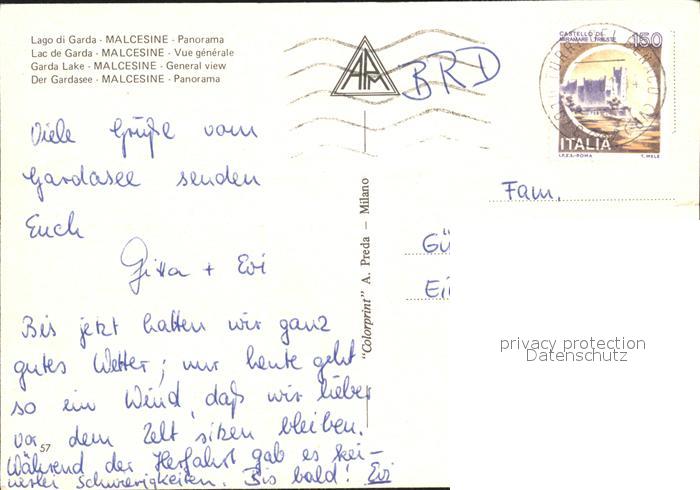 Lago di Garda - MALCESINE - Panorama
Lac de Garda - MALCESINE - Vue générale
Garda Lake - MALCESINE - General view
Der Gardasee - MALCESINE - Panorama
APM
BRD
CASTELLO DI
MIRAMARE - TRIESTE
150
ITALIA
I.P.Z.S.-ROMA T. MELE
Viele Grüße vom
Gardasee senden
Euch
Gitta + Evi
Bis jetzt hatten wir ganz
gutes Wetter; nur heute geht
so ein Wind, daß wir lieber
vor dem Zelt sitzen bleiben.
Während der Herfahrt gab es kei-
nerlei Schwierigkeiten. Bis bald! Evi
57
"Colorprint" A. Preda - Milano
Fam.
Gü
Ei
privacy protection
Datenschutz